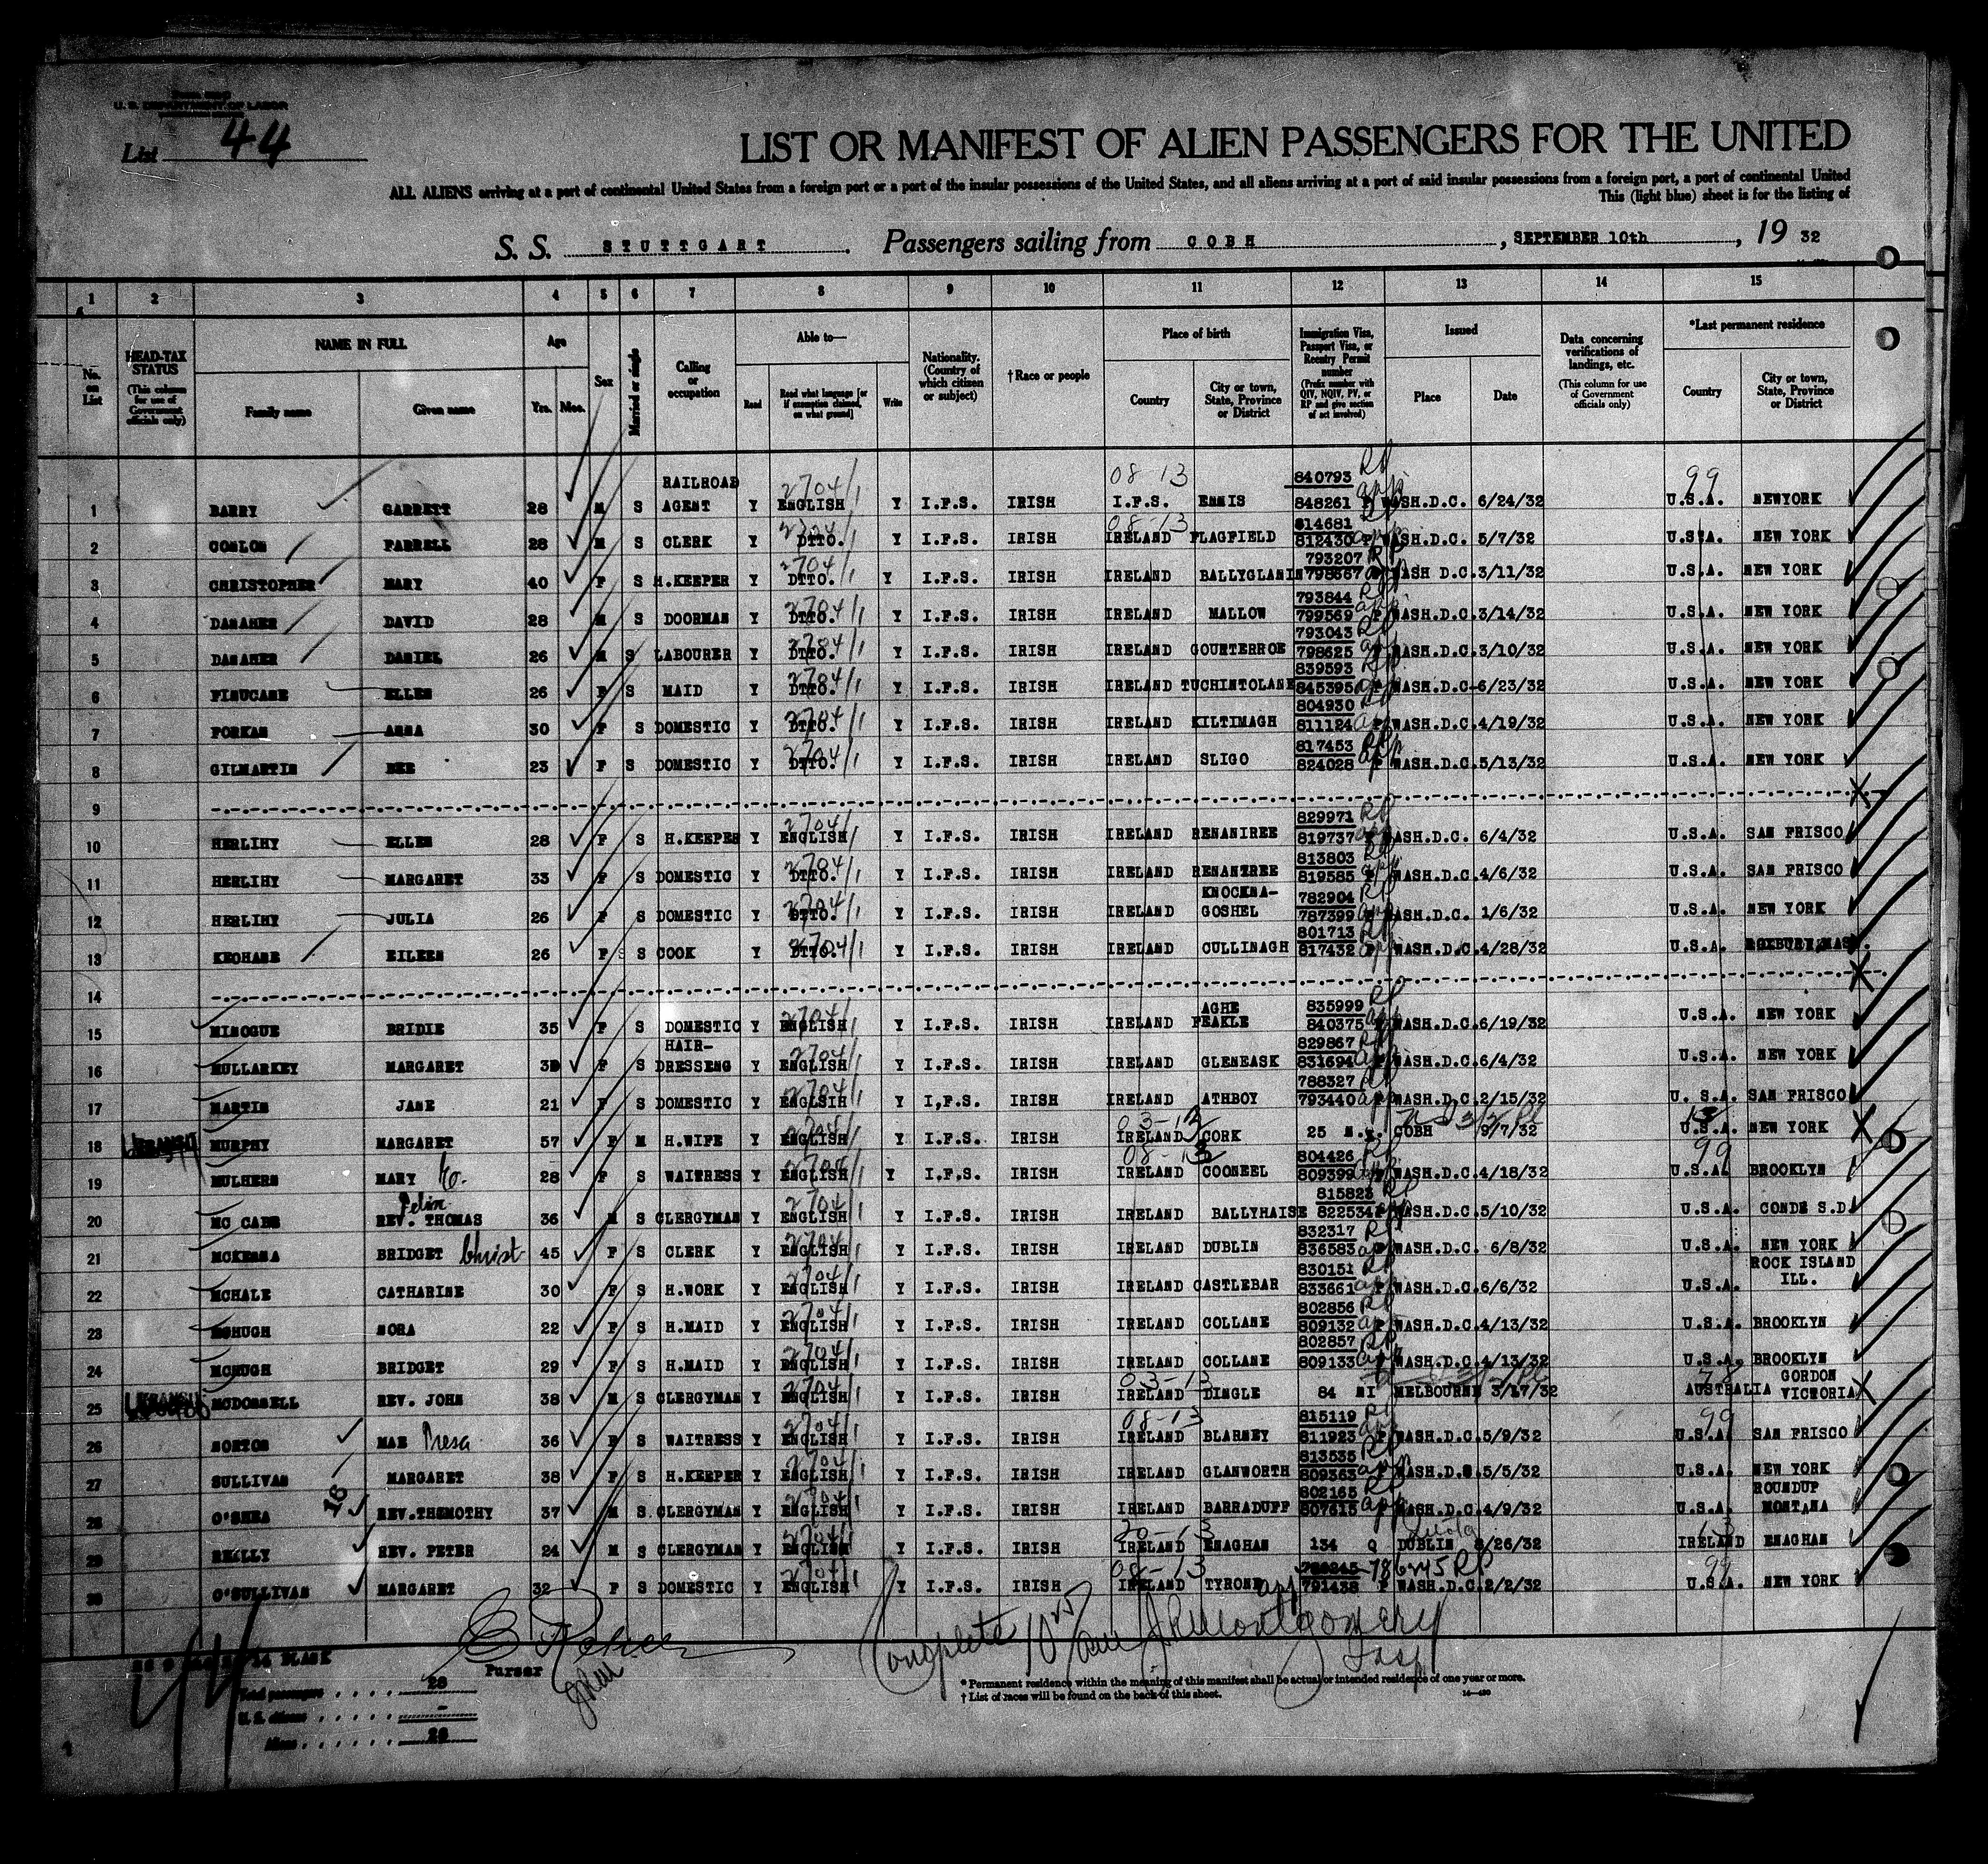 U. S. DEPARTMENT OF LABOR
List 44
LIST OR MANIFEST OF ALIEN PASSENGERS FOR THE UNITED
ALL ALIENS arriving at a port of continental United States from a foreign port or a port of the insular possessions of the United States, and all aliens arriving at a port of said insular possessions from a foreign port, a port of continental United
This (light blue) sheet is for the listing of
S. S. STUTTGART. Passengers sailing from COBH, SEPTEMBER 10th, 19 32
1 2 3 4 5 6 7 8 9 10 11 12 13 14 15
No. on List
HEAD-TAX STATUS (This column for use of Government officials only)
NAME IN FULL Family name Given name
Age Yrs. Mos.
Sex
Married or single
Calling or occupation
Able to— Read Read what language [or if exemption claimed, on what ground] Write
Nationality. (Country of which citizen or subject)
†Race or people
Place of birth Country City or town, State, Province or District
Immigration Visa, Passport Visa, or Reentry Permit number (Prefix number with QIV, NQIV, PV, or RP and give section of act involved)
Issued Place Date
Data concerning verifications of landings, etc. (This column for use of Government officials only)
*Last permanent residence Country City or town, State, Province or District
1 BARRY GARRETT 28 M S RAILROAD AGENT Y ENGLISH 2704/1 Y I.F.S. IRISH 08-13 I.F.S. ENNIS 840793 RP 848261 app P WASH.D.C. 6/24/32 99 U.S.A. NEWYORK
2 CONLON FARRELL 28 M S CLERK Y DTTO. Y I.F.S. IRISH 08-13 IRELAND FLAGFIELD 814681 812430 P WASH.D.C. 5/7/32 U.S.A. NEW YORK
3 CHRISTOPHER MARY 40 F S H.KEEPER Y DTTO. 2704/1 Y I.F.S. IRISH IRELAND BALLYGLANIN 793207 RP 798667 WASH D.C. 3/11/32 U.S.A. NEW YORK
4 DANAHER DAVID 28 M S DOORMAN Y DTTO. 2704/1 Y I.F.S. IRISH IRELAND MALLOW 793844 RP 799569 app P WASH.D.C. 3/14/32 U.S.A. NEW YORK
5 DANAHER DANIEL 26 M S LABOURER Y DTTO. 2704/1 Y I.F.S. IRISH IRELAND GOUNTERROE 793043 RP 798625 app WASH.D.C. 3/10/32 U.S.A. NEW YORK
6 FINUCANE ELLEN 26 F S MAID Y DTTO. 2704/1 Y I.F.S. IRISH IRELAND TUCHINTOLANE 839593 RP 845395 P WASH.D.C. 6/23/32 U.S.A. NEW YORK
7 FORKAN ANNA 30 F S DOMESTIC Y DTTO. 2704/1 Y I.F.S. IRISH IRELAND KILTIMAGH 804930 RP 811124 P WASH.D.C. 4/19/32 U.S.A. NEW YORK
8 GILMARTIN BEE 23 F S DOMESTIC Y DTTO. 2704/1 Y I.F.S. IRISH IRELAND SLIGO 817453 RP 824028 app P WASH.D.C. 5/13/32 U.S.A. NEW YORK
9 X
10 HERLIHY ELLEN 28 F S H.KEEPER Y ENGLISH 2704/1 Y I.F.S. IRISH IRELAND RENANIREE 829971 RP 819737 WASH.D.C. 6/4/32 U.S.A. SAN FRISCO
11 HERLIHY MARGARET 33 F S DOMESTIC Y DTTO. 2704/1 Y I.F.S. IRISH IRELAND RENANTREE 813803 RP 819585 app WASH.D.C. 4/6/32 U.S.A. SAN FRISCO
12 HERLIHY JULIA 26 F S DOMESTIC Y DTTO. 2704/1 Y I.F.S. IRISH IRELAND KNOCKNA-GOSHEL 782904 RP 787399 app P WASH.D.C. 1/6/32 U.S.A. NEW YORK
13 KEOHANE EILEEN 26 F S COOK Y DTTO. 2704/1 Y I.F.S. IRISH IRELAND CULLINAGH 801713 RP 817432 app WASH.D.C. 4/28/32 U.S.A. ROXBURY, MASS.
14 X
15 MINOGUE BRIDIE 35 F S DOMESTIC Y ENGLISH 2704/1 Y I.F.S. IRISH IRELAND AGHE FEAKLE 835999 RP 840375 app WASH.D.C. 6/19/32 U.S.A. NEW YORK
16 MULLARKEY MARGARET F S HAIR-DRESSENG Y ENGLISH 2704/1 Y I.F.S. IRISH IRELAND GLENEASK 829867 RP 831694 app WASH.D.C. 6/4/32 U.S.A. NEW YORK
17 MARTIN JANE 21 F S DOMESTIC Y ENGLSIH 2704/1 Y I,F.S. IRISH IRELAND ATHBOY 788327 RP 793440 app WASH.D.C. 2/15/32 U. S.A. SAN FRISCO
18 MURPHY MARGARET 57 F M H.WIFE Y ENGLISH 2704/1 Y I.F.S. IRISH 03-13 IRELAND CORK 25 COBH 9/7/32 U.S.A. NEW YORK X
19 MULHERN MARY 28 F S WAITRESS Y ENGLISH Y I.F.S. IRISH 08-13 IRELAND COONEEL 804426 RP 809399 app WASH.D.C. 4/18/32 99 U.S.A. BROOKLYN
20 MC CABE Felix REV. THOMAS 36 M S CLERGYMAN Y ENGLISH 2704/1 Y I.F.S. IRISH IRELAND BALLYHAISE 815823 RP 822534 WASH.D.C. 5/10/32 U.S.A. CONDE S.D.
21 MCKENNA BRIDGET Christ 45 F S CLERK Y ENGLISH 2704/1 Y I.F.S. IRISH IRELAND DUBLIN 832317 RP 836583 app WASH.D.C. 6/8/32 U.S.A. NEW YORK
22 MCHALE CATHARINE 30 F S H.WORK Y ENGLISH 2704/1 Y I.F.S. IRISH IRELAND CASTLEBAR 830151 RP 833661 app P WASH.D.C. 6/6/32 U.S.A. ROCK ISLAND ILL.
23 MCHUGH NORA 22 F S H.MAID Y ENGLISH 2704/1 Y I.F.S. IRISH IRELAND COLLANE 802856 RP 809132 app P WASH.D.C. 4/13/32 U.S.A. BROOKLYN
24 MCHUGH BRIDGET 29 F S H.MAID Y ENGLISH 2704/1 Y I.F.S. IRISH IRELAND COLLANE 802857 RP 809133 app WASH.D.C. 4/13/32 U.S.A. BROOKLYN
25 MCDONNELL REV. JOHN 38 M S CLERGYMAN Y ENGLISH 2704/1 Y I.F.S. IRISH 03-13 IRELAND DINGLE 84 NI MELBOURNE 3/17/32 AUSTRALIA GORDON VICTORIA X
26 NORTON MAE Tresa 36 F S WAITRESS Y ENGLISH 2704/1 Y I.F.S. IRISH 08-13 IRELAND BLARNEY 815119 RP 811923 app P WASH.D.C. 5/9/32 99 U.S.A. SAN FRISCO
27 SULLIVAN MARGARET 38 F S H.KEEPER Y ENGLISH 2704/1 Y I.F.S. IRISH IRELAND GLANWORTH 813535 RP 809363 app WASH.D.C. 5/5/32 U.S.A. NEW YORK
28 O'SHEA 16 REV.THEMOTHY 37 M S. CLERGYMAN Y ENGLISH 2704/1 Y I.F.S. IRISH IRELAND BARRADUFF 802165 RP 807615 app WASH.D.C. 4/9/32 U.S.A. ROUNDUP MONTANA
29 REILLY REV. PETER 24 M S CLERGYMAN Y ENGLISH 2704/1 Y I.F.S. IRISH 20-13 IRELAND ENAGHAN 134 Q Quota DUBLIN 8/26/32 13 IRELAND ENAGHAN
30 O'SULLIVAN MARGARET 32 F S DOMESTIC Y ENGLISH 2704/1 Y I.F.S. IRISH 08-13 IRELAND TYRONE app 786245 RP 791438 P WASH.D.C. 2/2/32 99 U.S.A. NEW YORK
Complete JR Montgomery Insp
Purser
14 BLANK
44
Total passengers 28
U. S. citizens –
Aliens 28
* Permanent residence within the meaning of this manifest shall be actual or intended residence of one year or more.
† List of races will be found on the back of this sheet.